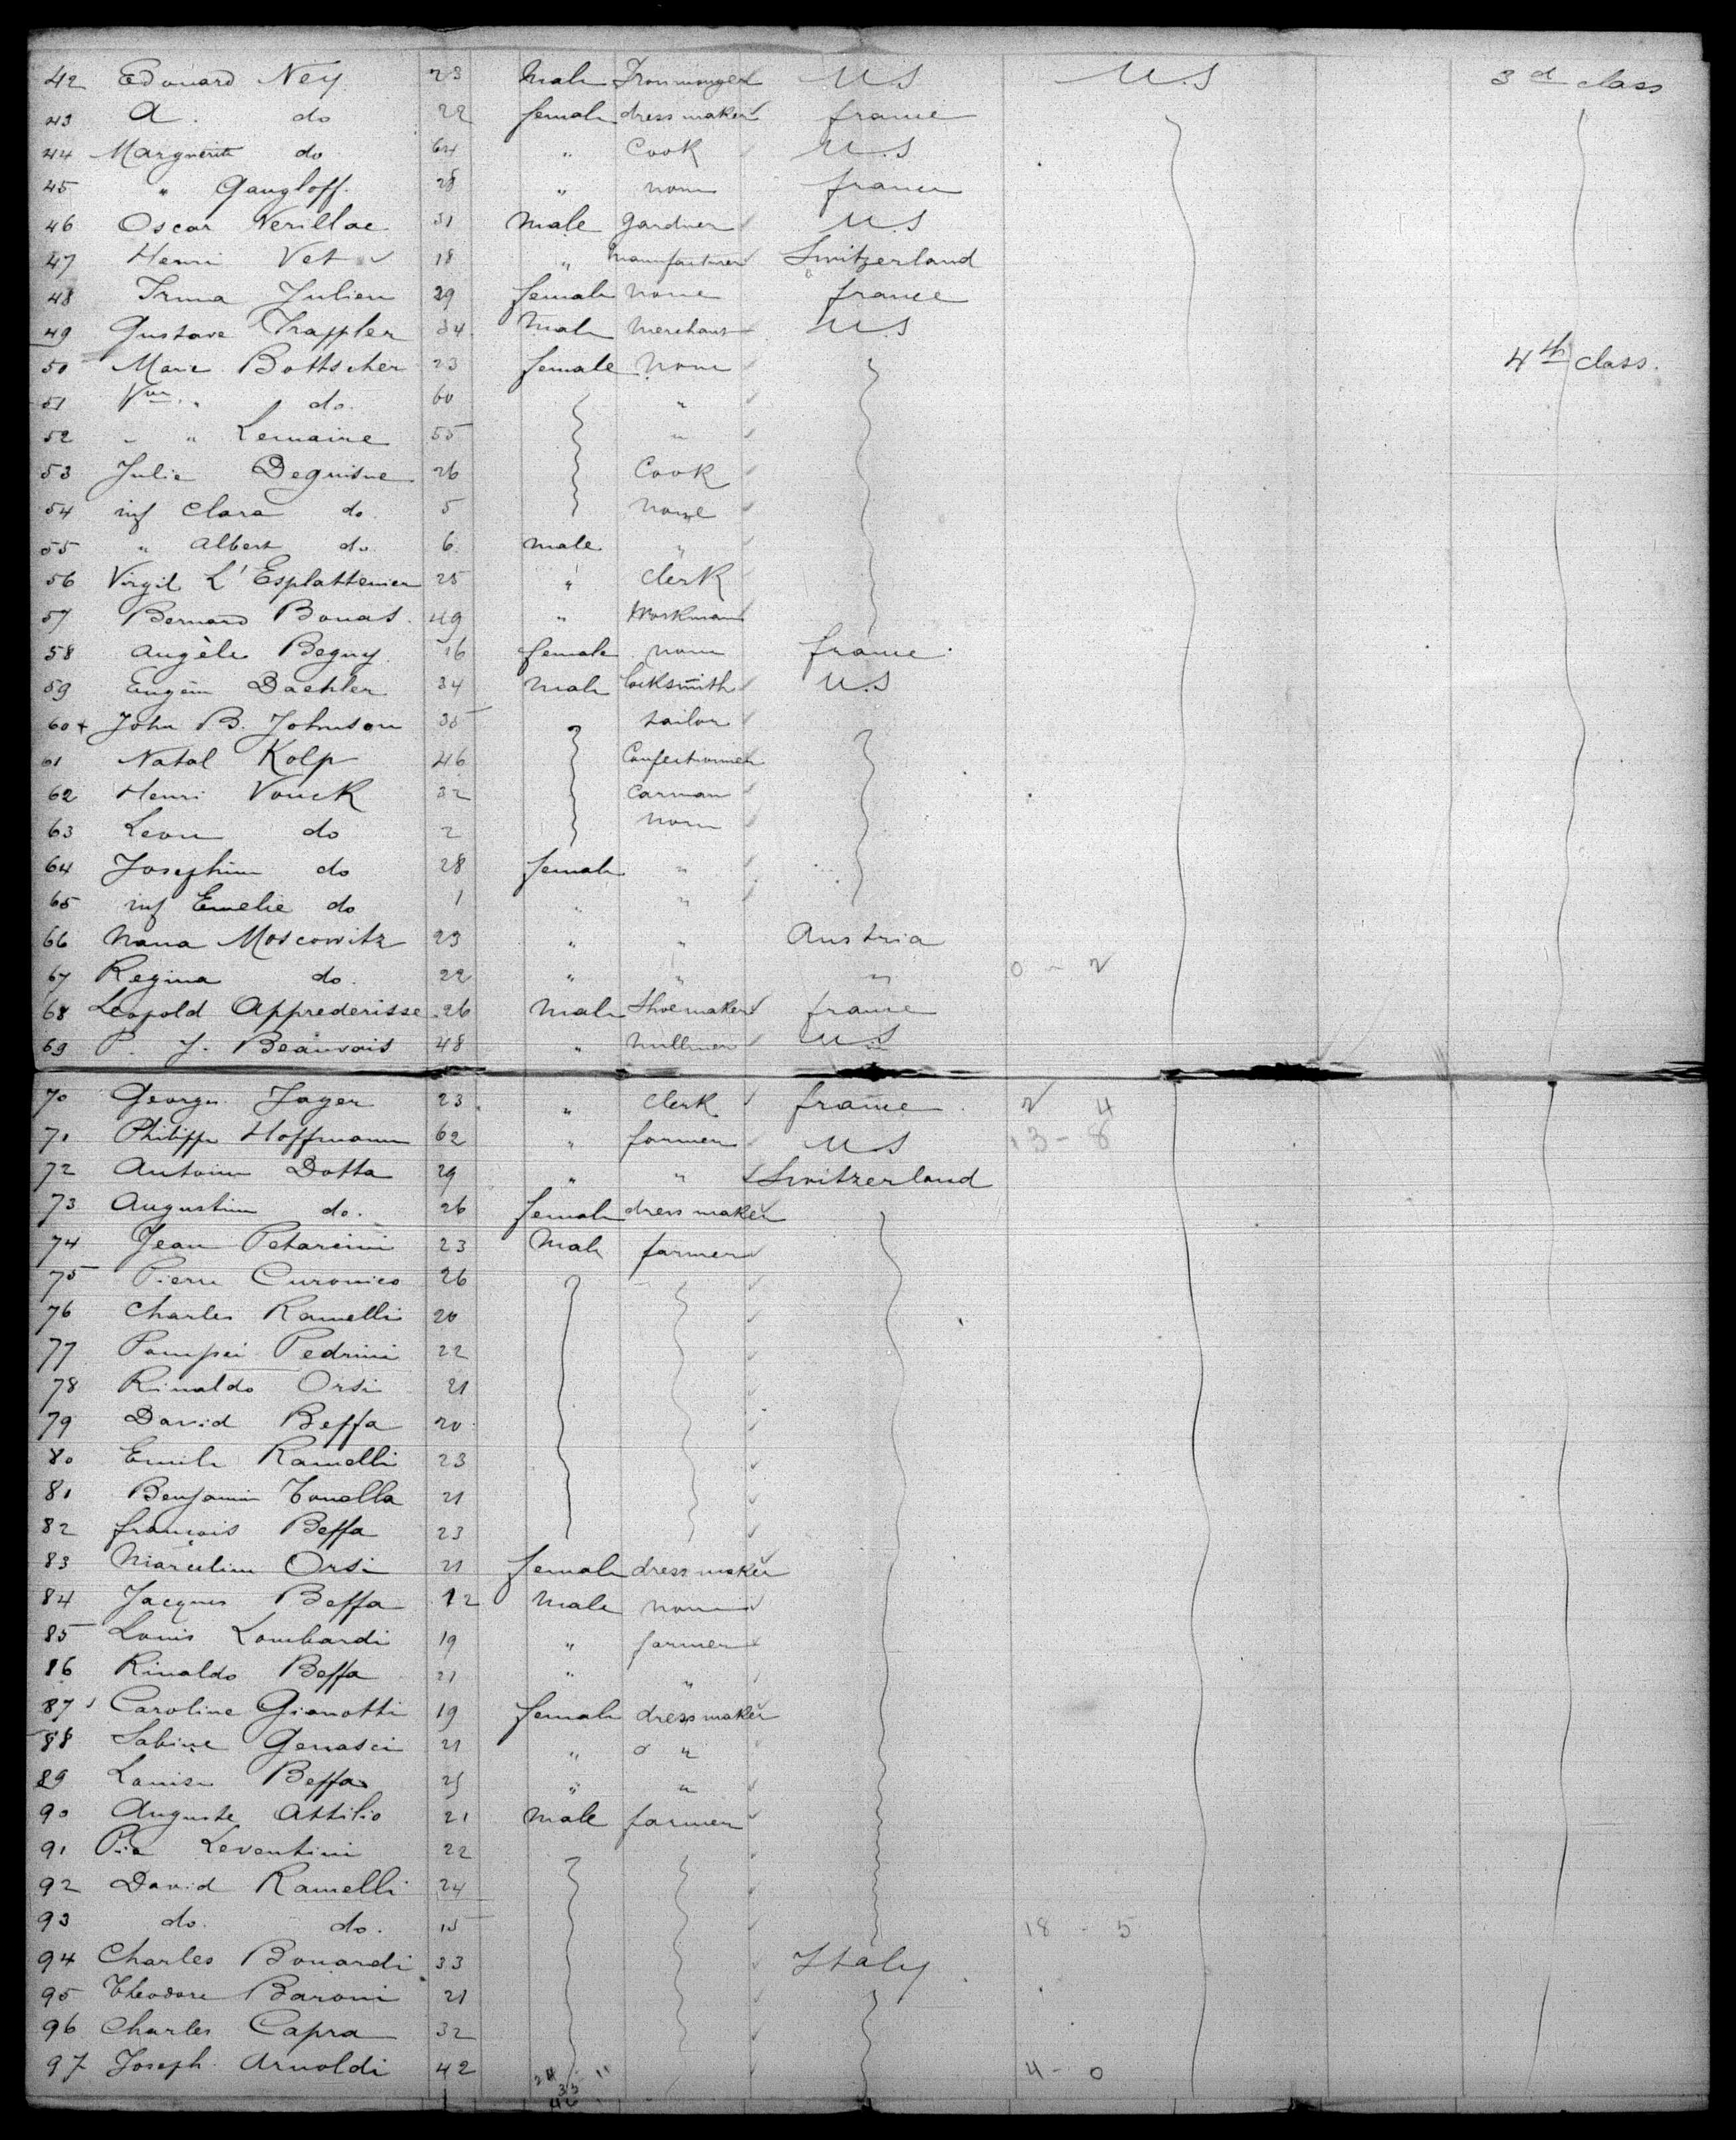 42 Edouard Ney 23 Male Ironmonger U.S U.S 3d class
43 A. do 22 female dress maker france
44 Marguerite do 64 " Cook U.S
45 " Gangloff. 28 " none france
46 Oscar Nerillac 31 Male Gardner U.S
47 Henri Vet 18 " Manufacturer Switzerland
48 Irma Julien 29 female None france
49 Gustave Trappler 34 Male Merchant U.S
50 Marie Bottscher 23 female None 4th class.
51 Vve " do. 60 "
52 " " Lemaire 55 "
53 Julie Deguisne 26 Cook
54 inf Clara do. 5 None
55 " Albert do. 6. Male "
56 Virgil L'Esplattenier 25 " Clerk
57 Bernard Bonas. 49 " Workman
58 Angèle Begny. 16 female none france
59 Eugène Daehler 34 Male locksmith U.S
60 + John B. Johnson 35 tailor
61 Natal Kolp 46 Confectionner
62 Henri Vonck 32 Carman
63 Leon do 2 None
64 Josephine do 28 female "
65 inf Emelie do 1 " "
66 Nana Moscowitz 23 " " Austria
67 Regina do. 22 " " " 0 - 2
68 Leopold Apprederisse 26 Male Shoemaker france
69 P. J. Beauvois 48 " U.S
70 Georges Jager 23 " Clerk france 2 4
71 Philippe Hoffmann 62 " farmer U.S 13 - 8
72 Antoine Dotta 29 " " Switzerland
73 Augustine do. 26 female dress maker
74 Jean Petarcini 23 Male farmer
75 Pierre Curonico 26
76 Charles Ramelli 20
77 Pompei Pedrini 22
78 Rinaldo Orsi 21
79 David Beffa 20
80 Emile Ramelli 23
81 Benjamin Tonella 21
82 françois Beffa 23
83 Marceline Orsi 21 female dress maker
84 Jacques Beffa 12 Male none
85 Louis Lombardi 19 " farmer
86 Rinaldo Beffa 21 " "
87 Caroline Gianotti 19 female dress maker
88 Sabine Genasci 21 " "
89 Louise Beffa 25 " "
90 Auguste Attilio 21 Male farmer
91 Pia Leventini 22
92 David Ramelli 24
93 do. do. 15 18 - 5
94 Charles Bonardi 33 Italy
95 Theodore Baroni 21
96 Charles Capra 32
97 Joseph Arnoldi 42 4 - 0